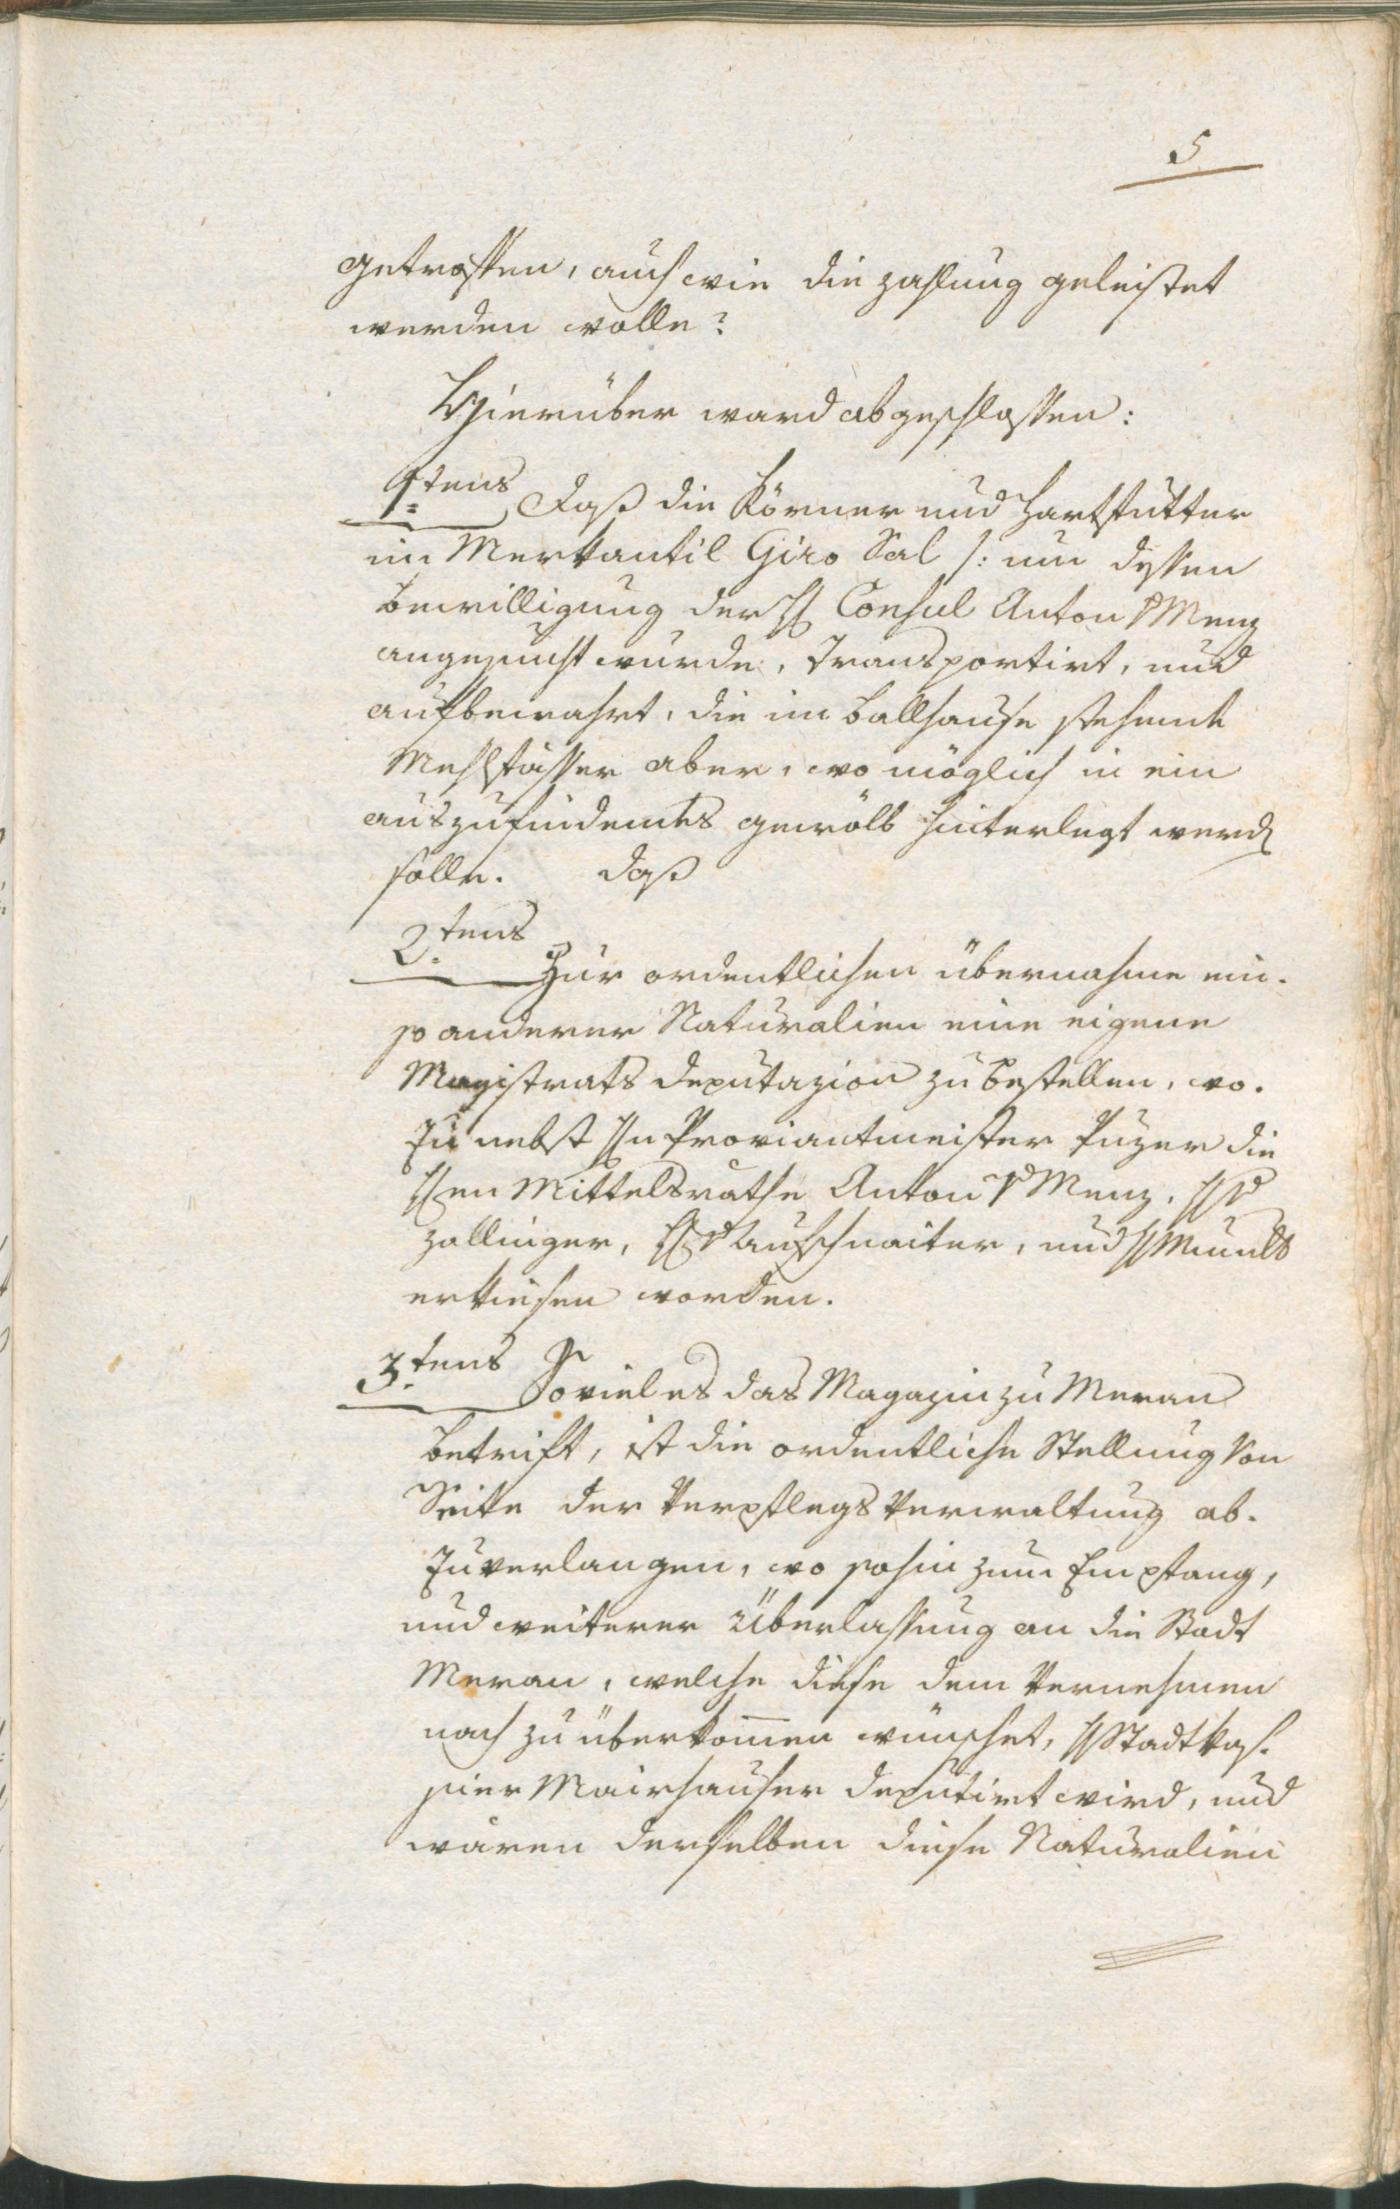 5
getroffen, auch wie die zahlung geleistet
werden wolle?
Hierüber ward abgeschlossen:
1:tens Daß die Körner und Hartfutter
im Merkantil Giro Sal /: um dessen
Bewilligung der H Consul Anton v Menz
angesucht wurde, transportirt, und
aufbewahrt, die im Ballhause stehende
Mehlfässer aber, wo möglich in ein
auszufindentes gewölb hinterlegt werd
solle. daß
2.tens Zur ordentlichen übernahme ein-
so anderer Naturalien eine eigene
Magistrats Deputazion zu bestellen, wo-
zu nebst Hn Proviantmeister Puzer die
Hen Mittelsräthe Anton v Menz, H v
Zallinger, H v Aufschnaiter, und H
erkiesen worden.
3.tens Soviel es das Magazin zu Meran
betrift, ist die ordentliche Stellung von
Seite der Verpflegs Verwaltung ab-
zuverlangen, wo sohin zum Empfang,
und weiterer Überlassung an die Stadt
Meran, welche diese dem Vernehmen
nach zu überkom̅en wünschet, H Stadtkas-
sier Mairhauser deputirt wird, und
wären derselben diese Naturalien